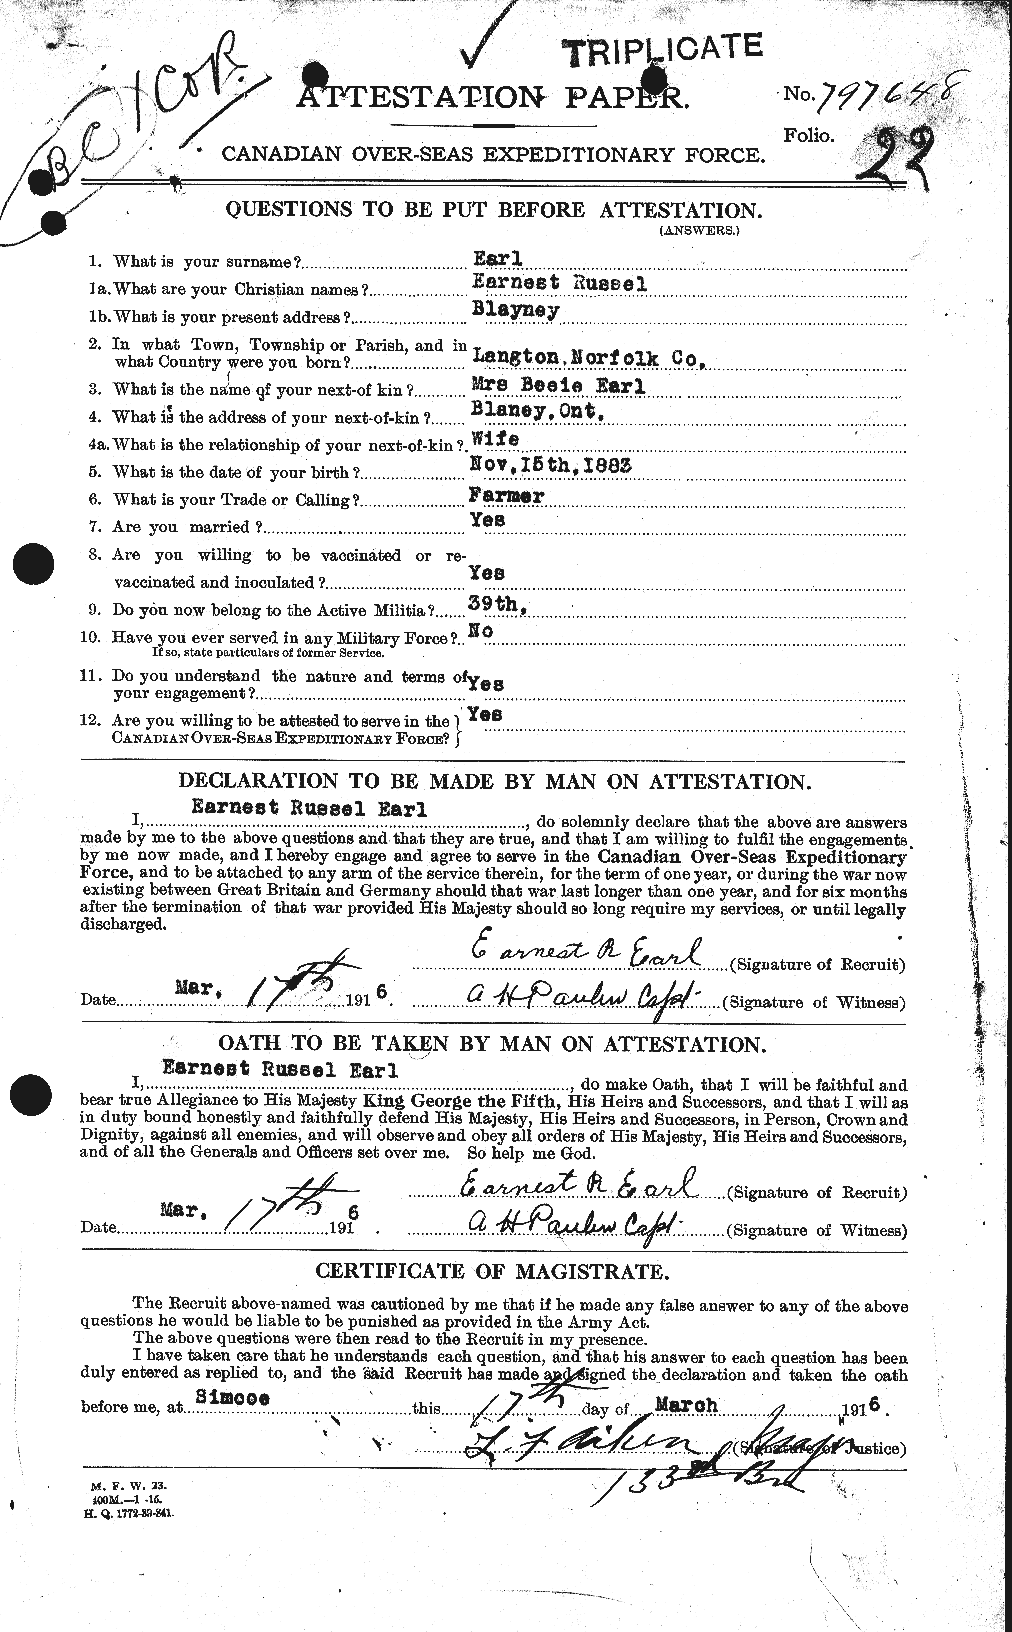 TRIPLICATE
BC X COR.
ATTESTATION PAPER.
No. 797648
Folio. 22
CANADIAN OVER-SEAS EXPEDITIONARY FORCE.
QUESTIONS TO BE PUT BEFORE ATTESTATION.
(ANSWERS.)
1. What is your surname? Earl
1a. What are your Christian names? Earnest Russel
1b. What is your present address? Blayney
2. In what Town, Township or Parish, and in
what Country were you born? Langton, Norfolk Co,
3. What is the name of your next-of kin? Mrs Beeie Earl
4. What is the address of your next-of-kin? Blaney, Ont.
4a. What is the relationship of your next-of-kin? Wife
5. What is the date of your birth? Nov, 15th, 1883
6. What is your Trade or Calling? Farmer
7. Are you married? Yes
8. Are you willing to be vaccinated or re-
vaccinated and inoculated? Yes
9. Do you now belong to the Active Militia? 39th,
10. Have you ever served in any Military Force? No
If so, state particulars of former Service.
11. Do you understand the nature and terms of
your engagement? Yes
12. Are you willing to be attested to serve in the } Yes
CANADIAN OVER-SEAS EXPEDITIONARY FORCE? }
DECLARATION TO BE MADE BY MAN ON ATTESTATION.
Earnest Russel Earl
I, , do solemnly declare that the above are answers
made by me to the above questions and that they are true, and that I am willing to fulfil the engagements
by me now made, and I hereby engage and agree to serve in the Canadian Over-Seas Expeditionary
Force, and to be attached to any arm of the service therein, for the term of one year, or during the war now
existing between Great Britain and Germany should that war last longer than one year, and for six months
after the termination of that war provided His Majesty should so long require my services, or until legally
discharged.
Earnest R Earl (Signature of Recruit)
Date Mar, 17th 1916. A H Paulin Capt. (Signature of Witness)
OATH TO BE TAKEN BY MAN ON ATTESTATION.
Earnest Russel Earl
I, , do make Oath, that I will be faithful and
bear true Allegiance to His Majesty King George the Fifth, His Heirs and Successors, and that I will as
in duty bound honestly and faithfully defend His Majesty, His Heirs and Successors, in Person, Crown and
Dignity, against all enemies, and will observe and obey all orders of His Majesty, His Heirs and Successors,
and of all the Generals and Officers set over me. So help me God.
Earnest R Earl (Signature of Recruit)
Date Mar, 17th 1916 A H Paulin Capt. (Signature of Witness)
CERTIFICATE OF MAGISTRATE.
The Recruit above-named was cautioned by me that if he made any false answer to any of the above
questions he would be liable to be punished as provided in the Army Act.
The above questions were then read to the Recruit in my presence.
I have taken care that he understands each question, and that his answer to each question has been
duly entered as replied to, and the said Recruit has made and signed the declaration and taken the oath
before me, at Simcoe this 17th day of March 1916.
L F Aiken Major (Signature of Justice)
133rd Bn
M. F. W. 23.
400M.—1 -16.
H. Q. 1772-39-841.